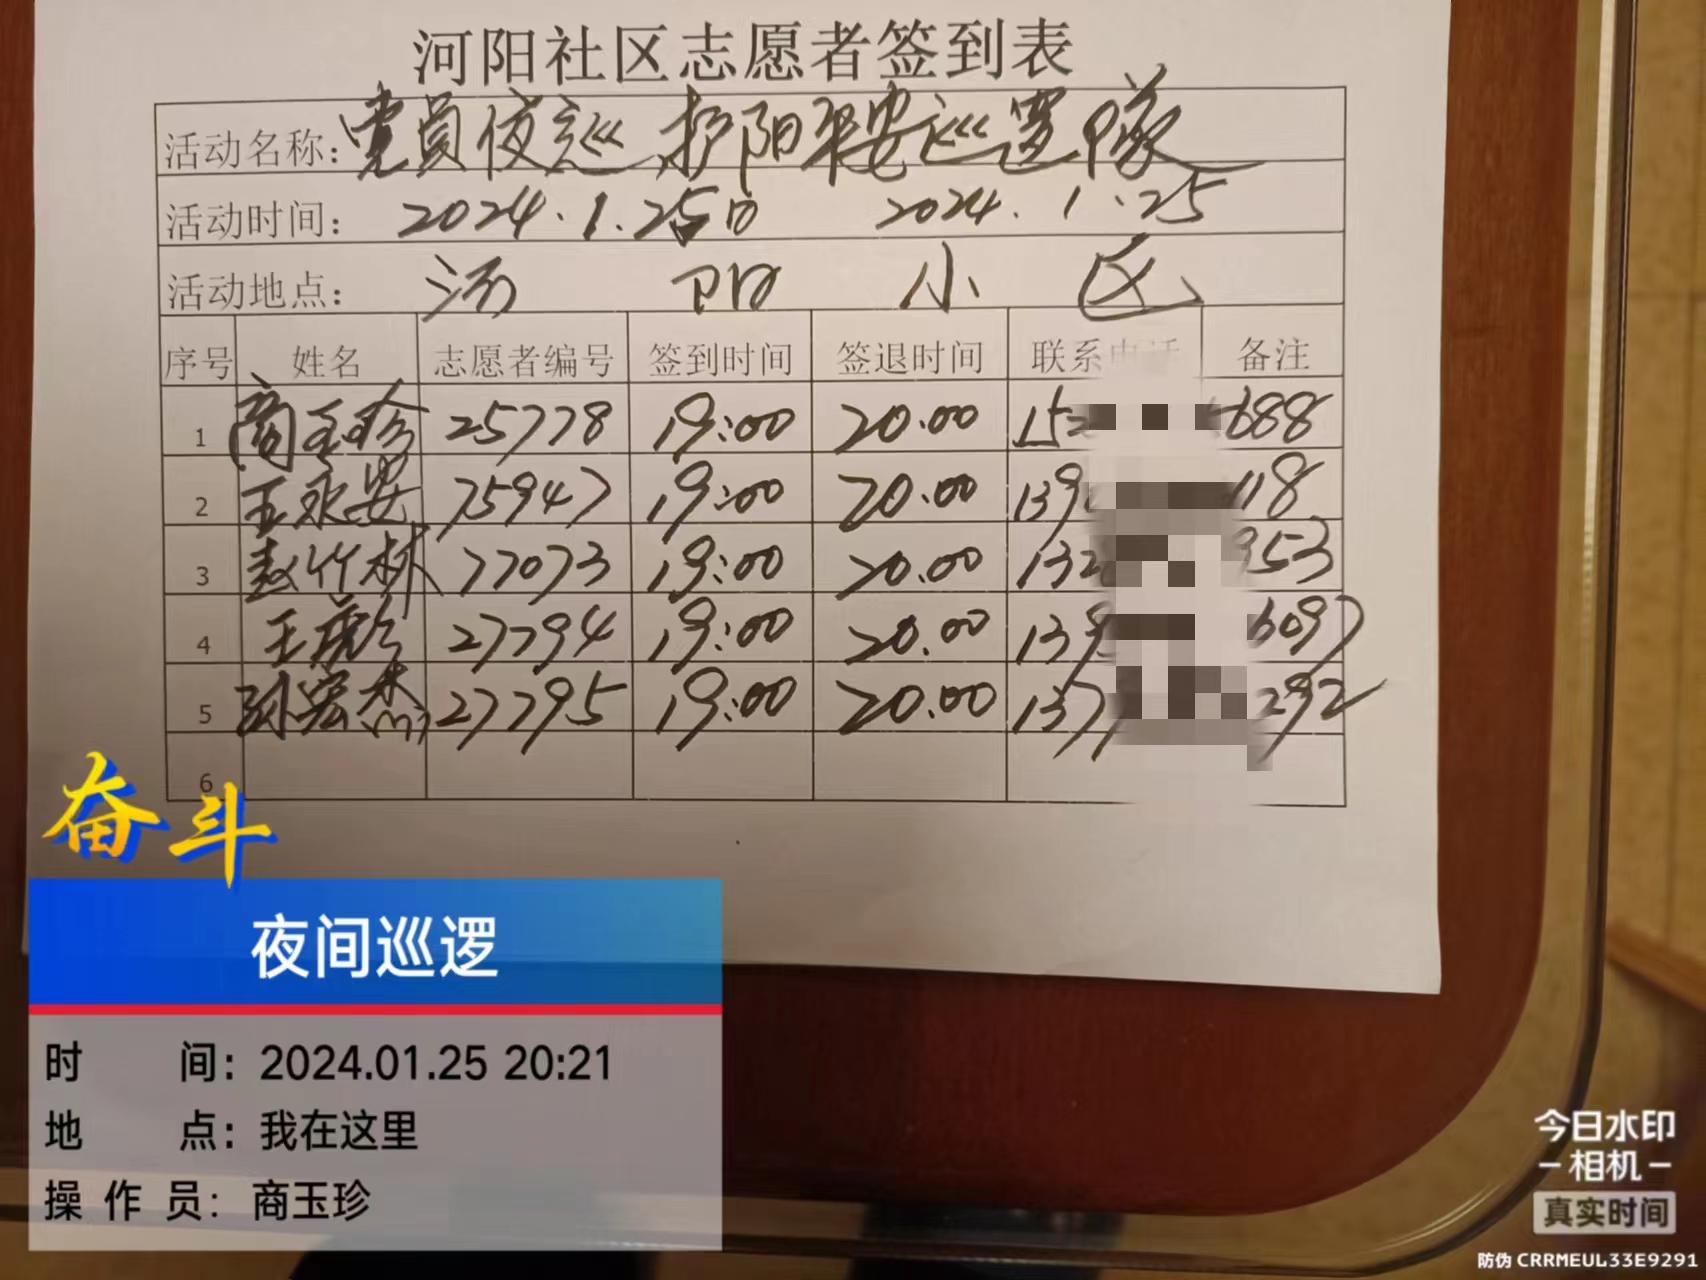 河阳社区志愿者签到表
活动名称：党员夜巡、护阳平安巡逻队
活动时间： 2024.1.25日 2024.1.25
活动地点： 河阳小区
序号 姓名 志愿者编号 签到时间 签退时间 联系电话 备注
1 商玉珍 25778 19:00 20.00 152 688
2 王永安 75947 19:00 20.00 139 118
3 赵竹林 77073 19:00 20.00 132 953
4 王 27794 19:00 20.00 139 6097
5 孙宏杰 27795 19:00 20.00 137 292
6
奋斗
夜间巡逻
时 间：2024.01.25 20:21
地 点：我在这里
操作员：商玉珍
今日水印
相机
真实时间
防伪 CRRMEUL33E9291